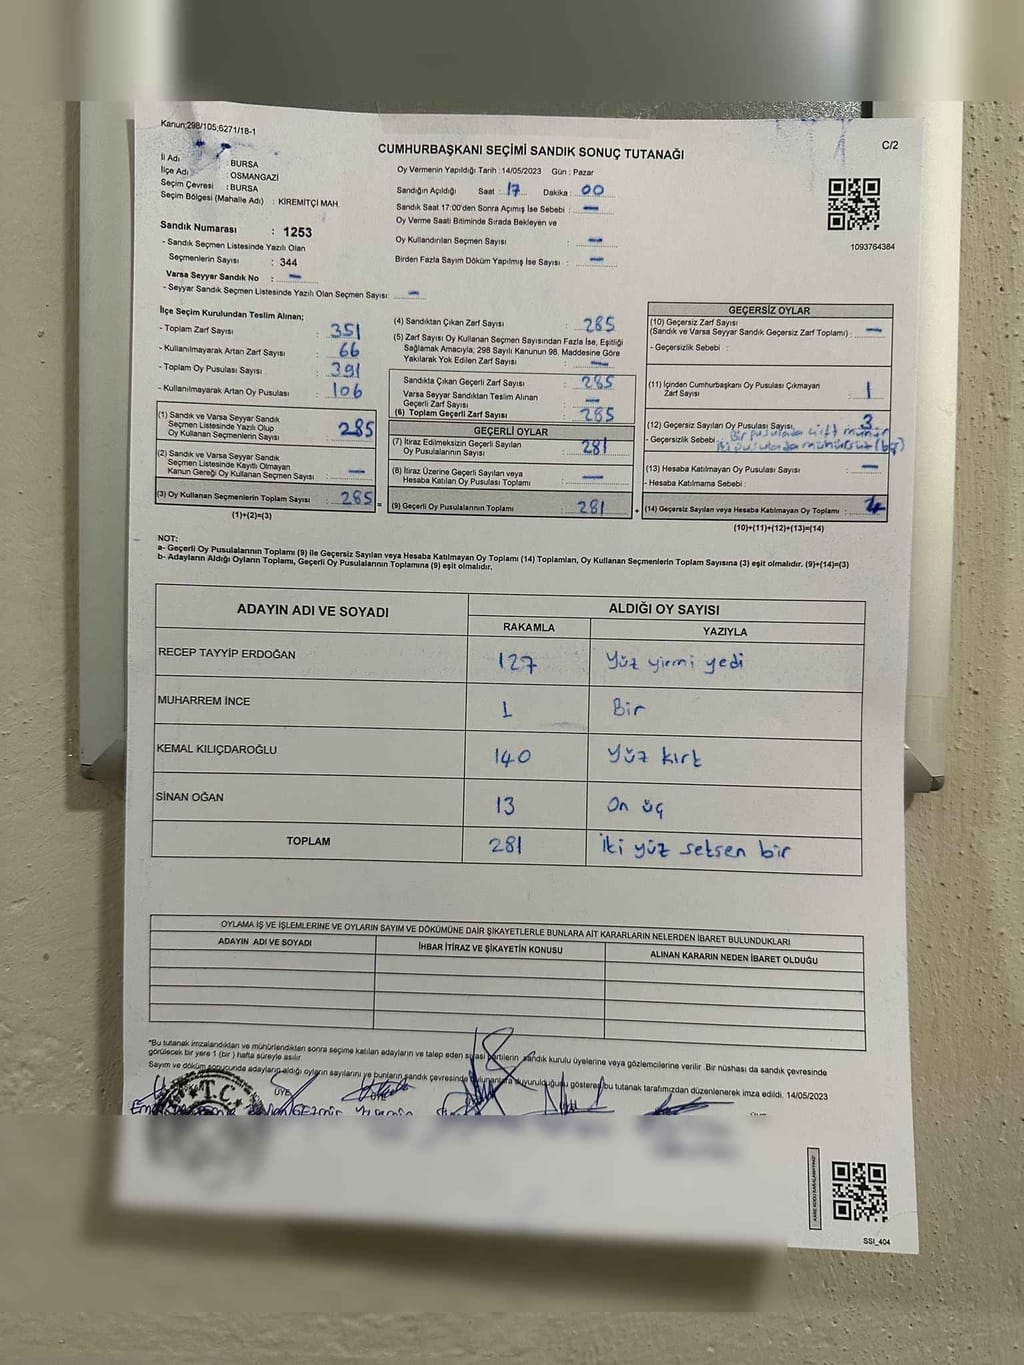 Kanun;298/105;6271/18-1
CUMHURBAŞKANI SEÇİMİ SANDIK SONUÇ TUTANAĞI
C/2
İl Adı : BURSA
İlçe Adı : OSMANGAZİ
Seçim Çevresi : BURSA
Seçim Bölgesi (Mahalle Adı) : KİREMİTÇİ MAH.
Sandık Numarası : 1253
- Sandık Seçmen Listesinde Yazılı Olan
Seçmenlerin Sayısı : 344
Varsa Seyyar Sandık No : —
- Seyyar Sandık Seçmen Listesinde Yazılı Olan Seçmen Sayısı: —
Oy Vermenin Yapıldığı Tarih : 14/05/2023 Gün : Pazar
Sandığın Açıldığı Saat : 17 Dakika : 00
Sandık Saat 17:00'den Sonra Açımış İse Sebebi : —
Oy Verme Saati Bitiminde Sırada Bekleyen ve
Oy Kullandırılan Seçmen Sayısı : —
Birden Fazla Sayım Döküm Yapılmış İse Sayısı : —
1093764384
İlçe Seçim Kurulundan Teslim Alınan;
- Toplam Zarf Sayısı : 351
- Kullanılmayarak Artan Zarf Sayısı : 66
- Toplam Oy Pusulası Sayısı : 391
- Kullanılmayarak Artan Oy Pusulası : 106
(1) Sandık ve Varsa Seyyar Sandık
Seçmen Listesinde Yazılı Olup
Oy Kullanan Seçmenlerin Sayısı : 285
(2) Sandık ve Varsa Seyyar Sandık
Seçmen Listesinde Kayıtlı Olmayan
Kanun Gereği Oy Kullanan Seçmen Sayısı : —
(3) Oy Kullanan Seçmenlerin Toplam Sayısı : 285 =
(1)+(2)=(3)
(4) Sandıktan Çıkan Zarf Sayısı : 285
(5) Zarf Sayısı Oy Kullanan Seçmen Sayısından Fazla İse, Eşitliği
Sağlamak Amacıyla; 298 Sayılı Kanunun 98. Maddesine Göre
Yakılarak Yok Edilen Zarf Sayısı : —
Sandıkta Çıkan Geçerli Zarf Sayısı : 285
Varsa Seyyar Sandıktan Teslim Alınan
Geçerli Zarf Sayısı : —
(6) Toplam Geçerli Zarf Sayısı : 285
GEÇERLİ OYLAR
(7) İtiraz Edilmeksizin Geçerli Sayılan
Oy Pusulalarının Sayısı : 281
(8) İtiraz Üzerine Geçerli Sayılan veya
Hesaba Katılan Oy Pusulası Toplamı : —
(9) Geçerli Oy Pusulalarının Toplamı : 281 +
GEÇERSİZ OYLAR
(10) Geçersiz Zarf Sayısı
(Sandık ve Varsa Seyyar Sandık Geçersiz Zarf Toplamı) : —
- Geçersizlik Sebebi :
(11) İçinden Cumhurbaşkanı Oy Pusulası Çıkmayan
Zarf Sayısı : 1
(12) Geçersiz Sayılan Oy Pusulası Sayısı : 3
- Geçersizlik Sebebi : Bir pusulada çift mühür
pusulada mühürsüz
(13) Hesaba Katılmayan Oy Pusulası Sayısı : —
- Hesaba Katılmama Sebebi :
(14) Geçersiz Sayılan veya Hesaba Katılmayan Oy Toplamı : 4
(10)+(11)+(12)+(13)=(14)
NOT:
a- Geçerli Oy Pusulalarının Toplamı (9) ile Geçersiz Sayılan veya Hesaba Katılmayan Oy Toplamı (14) Toplamları, Oy Kullanan Seçmenlerin Toplam Sayısına (3) eşit olmalıdır. (9)+(14)=(3)
b- Adayların Aldığı Oyların Toplamı, Geçerli Oy Pusulalarının Toplamına (9) eşit olmalıdır.
ADAYIN ADI VE SOYADI
ALDIĞI OY SAYISI
RAKAMLA YAZIYLA
RECEP TAYYİP ERDOĞAN 127 Yüz yirmi yedi
MUHARREM İNCE 1 Bir
KEMAL KILIÇDAROĞLU 140 Yüz kırk
SİNAN OĞAN 13 On üç
TOPLAM 281 İki yüz seksen bir
OYLAMA İŞ VE İŞLEMLERİNE VE OYLARIN SAYIM VE DÖKÜMÜNE DAİR ŞİKAYETLERLE BUNLARA AİT KARARLARIN NELERDEN İBARET BULUNDUKLARI
ADAYIN ADI VE SOYADI İHBAR İTİRAZ VE ŞİKAYETİN KONUSU ALINAN KARARIN NEDEN İBARET OLDUĞU
"Bu tutanak imzalandıktan ve mühürlendikten sonra seçime katılan adayların ve talep eden siyasi partilerin, sandık kurulu üyelerine veya gözlemcilerine verilir .Bir nüshası da sandık çevresinde
görülecek bir yere 1 (bir ) hafta süreyle asılır.
Sayım ve döküm sonucunda adayların aldığı oyların sayılarını ve bunların sandık çevresinde bulunanlara duyurulduğunu gösteren bu tutanak tarafımızdan düzenlenerek imza edildi. 14/05/2023
T.C.
ÜYE
SSI_404